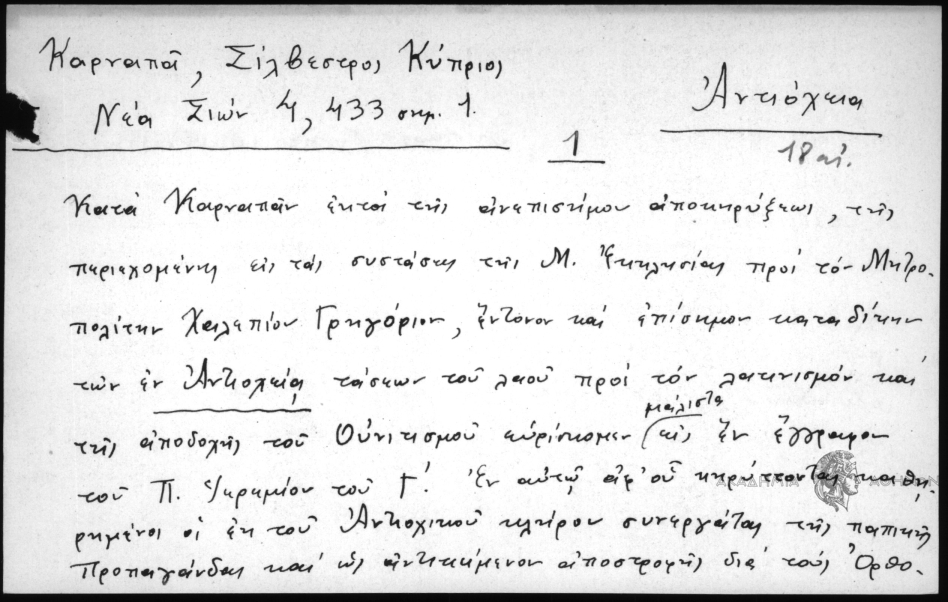 Καρναπᾶ, Σίλβεστρος Κύπριος
Νέα Σιών 4, 433 σημ. 1.
Ἀντιόχεια
1
18 αἰ.
Κατά Καρναπᾶν ἐκτός τῆς ἀνεπισήμου ἀποκηρύξεως, τῆς
περιεχομένης εἰς τάς συστάσεις τῆς Μ. Ἐκκλησίας πρός τόν Μητρο-
πολίτην Χαλεπίου Γρηγόριον, ἔντονον καί ἐπίσημον καταδίκην
τῶν ἐν Ἀντιοχείᾳ τάσεων τοῦ λαοῦ πρός τόν λατινισμόν καί
μάλιστα
τῆς ἀποδοχῆς τοῦ Οὐνιτισμοῦ εὑρίσκομεν εἰς ἕν ἔγγραφον
τοῦ Π. Ἱερεμίου τοῦ Γ΄. Ἐν αὐτῷ ἀφ' οὗ κηρύττονται καθῃ-
ρημένοι οἱ ἐκ τοῦ Ἀντιοχικοῦ κλήρου συνεργάται τῆς παπικῆς
Προπαγάνδας καί ὡς ἀντικείμενον ἀποστροφῆς διά τούς Ὀρθο-
ΑΚΑΔΗΜΙΑ ΑΘΗΝΩΝ